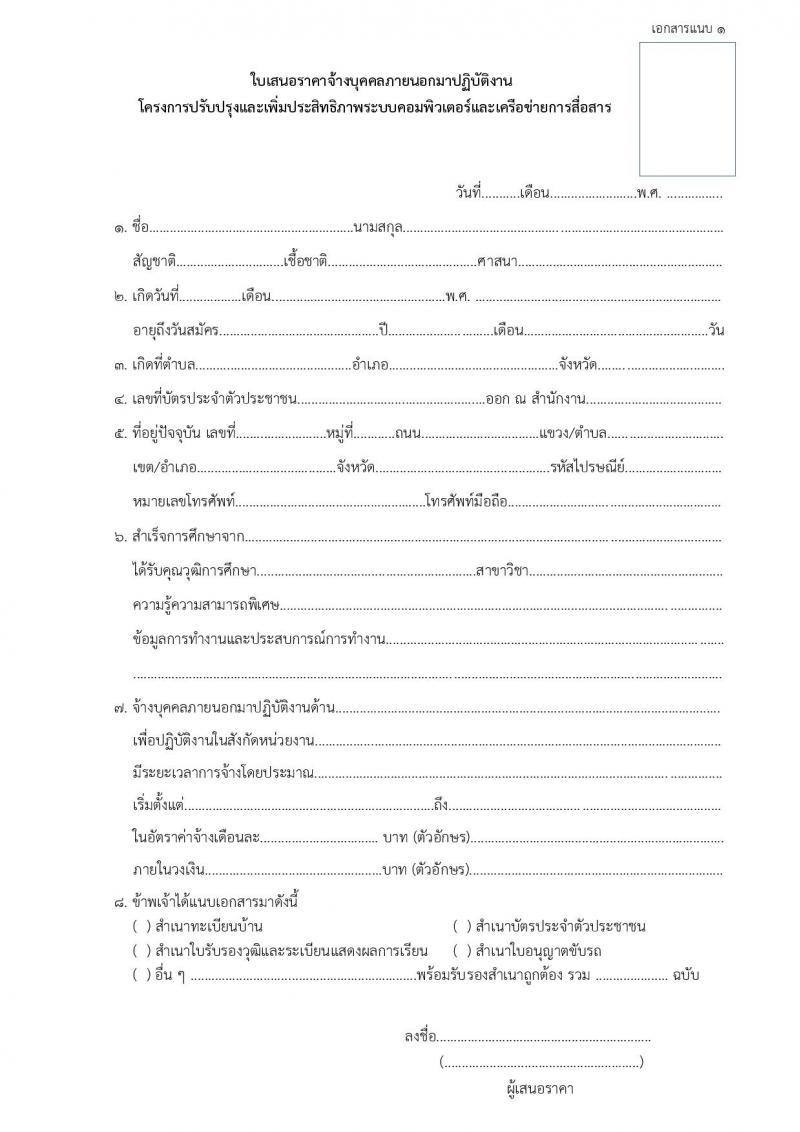 เอกสารแนบ ๑
ใบเสนอราคาจ้างบุคคลภายนอกมาปฏิบัติงาน
โครงการปรับปรุงและเพิ่มประสิทธิภาพระบบคอมพิวเตอร์และเครือข่ายการสื่อสาร
วันที่...........เดือน.........................พ.ศ. ................
๑. ชื่อ...........................................................นามสกุล............................................................................................
สัญชาติ...............................เชื้อชาติ...........................................ศาสนา...........................................................
๒. เกิดวันที่..................เดือน..................................................พ.ศ. ......................................................................
อายุถึงวันสมัคร..............................................ปี..............................เดือน.....................................................วัน
๓. เกิดที่ตำบล.............................................อำเภอ.................................................จังหวัด.....................................
๔. เลขที่บัตรประจำตัวประชาชน......................................................ออก ณ สำนักงาน.......................................
๕. ที่อยู่ปัจจุบัน เลขที่..........................หมู่ที่............ถนน..................................แขวง/ตำบล.................................
เขต/อำเภอ........................................จังหวัด..................................................รหัสไปรษณีย์............................
หมายเลขโทรศัพท์.......................................................โทรศัพท์มือถือ.............................................................
๖. สำเร็จการศึกษาจาก.........................................................................................................................................
ได้รับคุณวุฒิการศึกษา...............................................................สาขาวิชา........................................................
ความรู้ความสามารถพิเศษ...............................................................................................................................
ข้อมูลการทำงานและประสบการณ์การทำงาน.................................................................................................
.........................................................................................................................................................................
๗. จ้างบุคคลภายนอกมาปฏิบัติงานด้าน...............................................................................................................
เพื่อปฏิบัติงานในสังกัดหน่วยงาน.....................................................................................................................
มีระยะเวลาการจ้างโดยประมาณ.....................................................................................................................
เริ่มตั้งแต่........................................................................ถึง...............................................................................
ในอัตราค่าจ้างเดือนละ.................................. บาท (ตัวอักษร).........................................................................
ภายในวงเงิน...................................................บาท (ตัวอักษร).........................................................................
๘. ข้าพเจ้าได้แนบเอกสารมาดังนี้
( ) สำเนาทะเบียนบ้าน ( ) สำเนาบัตรประจำตัวประชาชน
( ) สำเนาใบรับรองวุฒิและระเบียนแสดงผลการเรียน ( ) สำเนาใบอนุญาตขับรถ
( ) อื่น ๆ .................................................................พร้อมรับรองสำเนาถูกต้อง รวม ..................... ฉบับ
ลงชื่อ..............................................................
(.........................................................)
ผู้เสนอราคา